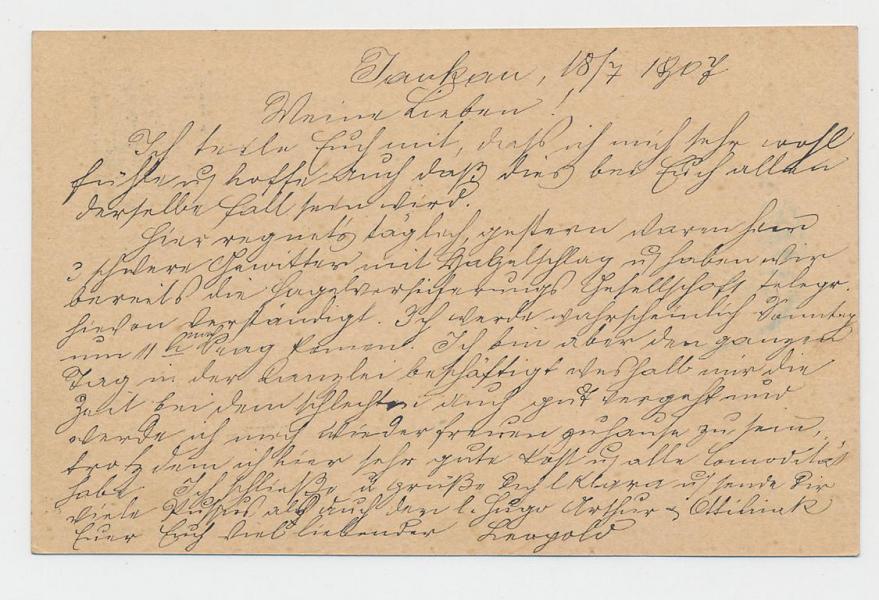 Jankau, 18/7 1907
Meine Lieben!
Ich teile Euch mit, dass ich mich sehr wohl
fühle u hoffe auch daß dies bei Euch allen
derselbe Fall sein wird.
Hier regnet's täglich, gestern waren hier
schwere Gewitter mit Hagelschlag u haben wir
bereits die Hagelversicherungs Gesellschaft telegr.
hievon verständigt. Ich werde wahrscheinlich Sonntag
um 11 h nach Prag kommen. Ich bin aber den ganzen
Tag in der Kanzlei beschäftigt weshalb mir die
Zeit bei dem schlechten auch gut vergeht und
werde ich mich wieder freuen zuhause zu sein,
trotzdem ich hier sehr gute Kost u alle Comodität
habe. Ich schließe u grüße Dich l. Klara u sende Dir
viele Küsse als auch den l. Hugo Arthur &
Euer Euch viel liebender Leopold